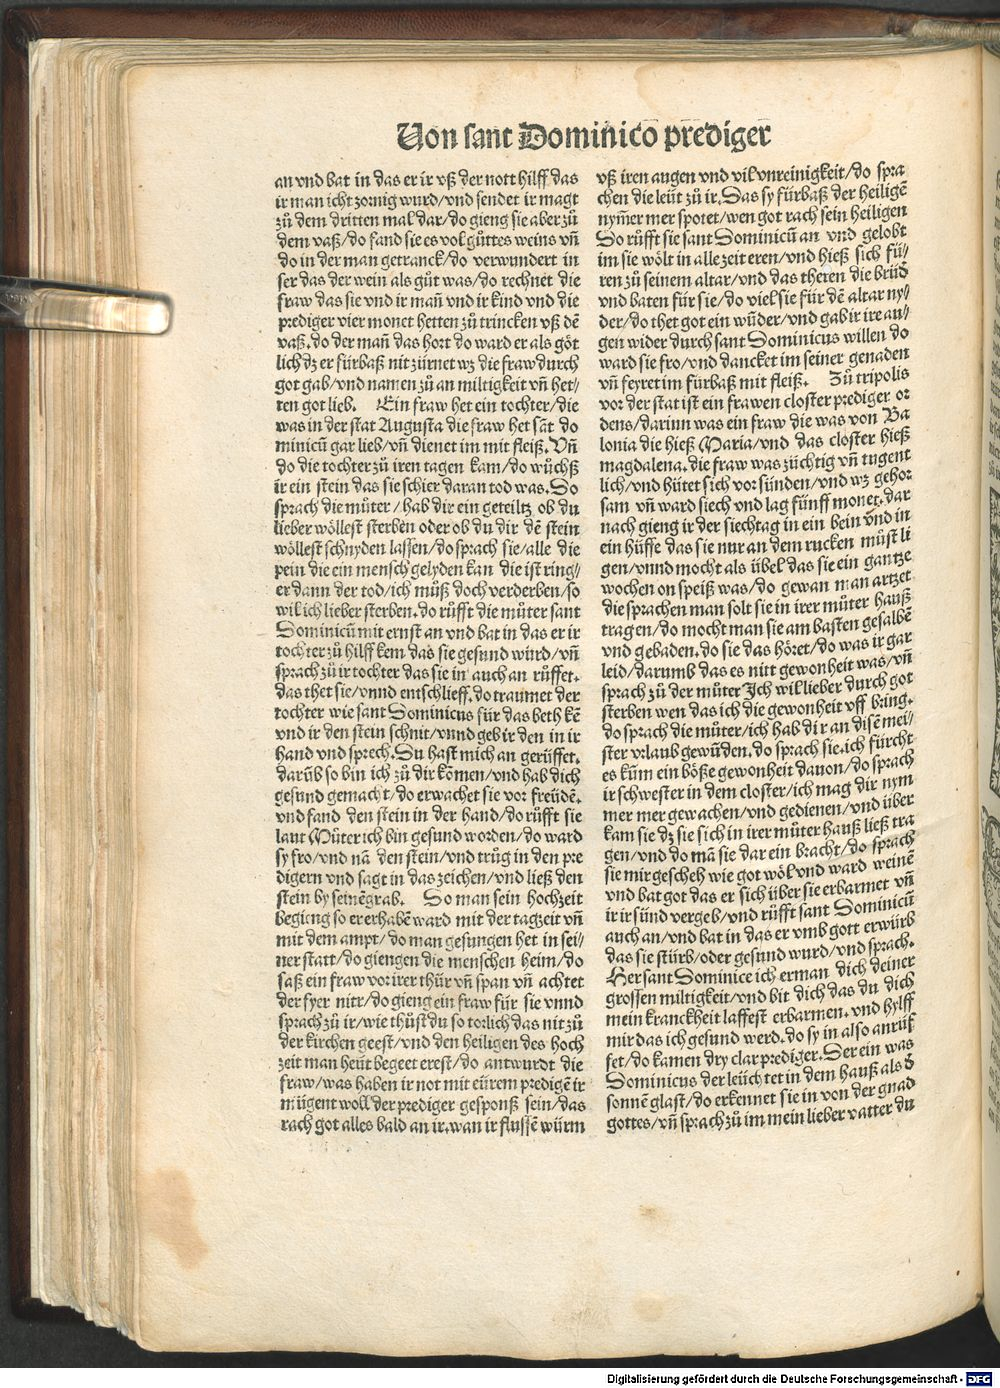 Von sant Dominico prediger
an vnd bat in das er ir vß der nott hilff das
ir man icht zornig wurd/vnd sendet ir magt
zů dem dritten mal dar/do gieng sie aber zů
dem vaß/do fand sie es vol gůttes weins vñ
do in der man getranck/do verwundert in
ser das der wein als gůt was/do rechnet die
fraw das sie vnd ir mañ vnd ir kind vnd die
prediger vier monet hetten zů trincken vß dē
vaß. do der mañ das hort do ward er als göt
lich dz er fürbaß nit zürnet wz die fraw durch
got gab/vnd namen zů an miltigkeit vñ het-
ten got lieb. Ein fraw het ein tochter/die
was in der stat Augusta die fraw het sāt do
minicū gar lieb/vñ dienet im mit fleiß. Vñ
do die tochter zů iren tagen kam/do wůchß
ir ein stein das sie schier daran tod was. Do
sprach die můter/hab dir ein geteiltz ob du
lieber wöllest sterben oder ob du dir dē stein
wöllest schnyden lassen/do sprach sie/alle die
pein die ein mensch gelyden kan die ist ring/
er dann der tod/ich můß doch verderben/so
wil ich lieber sterben. do růfft die můter sant
Dominicū mit ernst an vnd bat in das er ir
tochter zů hilff kem das sie gesund würd/vñ
sprach zů ir tochter das sie in auch an růffet.
das thet sie/vnnd entschlieff. do traumet der
tochter wie sant Dominicus für das beth kē
vnd ir den stein schnit/vnnd geb ir den in ir
hand vnd sprech. Du hast mich an gerüffet.
darūb so bin ich zů dir kōmen/vnd hab dich
gesund gemacht/do erwachet sie vor freüdē.
vnd fand den stein in der hand/do růfft sie
laut Můter ich bin gesund worden/do ward
sy fro/vnd nā den stein/vnd trůg in den pre
digern vnd sagt in das zeichen/vnd ließ den
stein by seinē grab. So man sein hochzeit
begieng so er erhabē ward mit der tagzeit vñ
mit dem ampt/do man gesungen het in sei/
ner statt/do giengen die menschen heim/do
saß ein fraw vor irer thür vñ span vñ achtet
der fyer nitr/do gieng ein fraw für sie vnnd
sprach zů ir/wie thůst du so torlich das nit zů
der kirchen geest/vnd den heiligen des hoch
zeit man heüt begeet erest/do antwurdt die
fraw/was haben ir not mit eürem predigē ir
mügent woll der prediger gesponß sein/das
rach got alles bald an ir. wan ir flussē würm
vß iren augen vnd vil vnreinigkeit/do spra
chen die leüt zů ir. Das sy fürbaß der heiligē
nym̄er mer spotet/wen got rach sein heiligen
Do růfft sie sant Dominicū an vnd gelobt
im sie wölt in alle zeit eren/vnd hieß sich fü/
ren zů seinem altar/vnd das theten die brüd
vnd baten für sie/do viel sie für dē altar ny/
der/do thet got ein wūder/vnd gab ir ire au/
gen wider durch sant Dominicus willen do
ward sie fro/vnd dancket im seiner genaden
vñ feyret im fürbaß mit fleiß. Zů tripolis
vor der stat ist ein frawen closter prediger or
dens/darinn was ein fraw die was von Ba
lonia die hieß Maria/vnd das closter hieß
magdalena. die fraw was züchtig vñ tugent
lich/vnd hütet sich vor sünden/vnd wz gehor
sam vñ ward siech vnd lag fünff monet. dar
nach gieng ir der siechtag in ein bein vnd in
ein hüffe das sie nur an dem rucken můst li
gen/vnnd mocht als übel das sie ein gantze
wochen on speiß was/do gewan man artzet
die sprachen man solt sie in irer můter hauß
tragen/do mocht man sie am basten gesalbē
vnd gebaden. do sie das höret/do was ir gar
leid/darumb das es nitt gewonheit was/vñ
sprach zů der můter Ich wil lieber durch got
sterben wen das ich die gewonheit vff bring.
do sprach die můter/ich hab dir an disē mei/
ster vrlaub gewūden. do sprach sie. ich fürcht
es kūm ein böße gewonheit dauon/do sprach
ir schwester in dem closter/ich mag dir nym
mer mer gewachen/vnd gedienen/vnd über
kam sie dz sie sich in irer můter hauß ließ tra
gen/vnd do mā sie dar ein bracht/do sprach
sie mir gescheh wie got wöl vnd ward weinē
vnd bat got das er sich über sie erbarmet vñ
ir ir sünd vergeb/vnd růfft sant Dominicū
auch an/vnd bat in das er vmb gott erwürb
das sie stürb/oder gesund wurd/vnd sprach.
Her sant Dominice ich erman dich deiner
grossen miltigkeit/vnd bit dich das du dich
mein kranckheit lassest erbarmen. vnd hylff
mir das ich gesund werd. do sy in also anrüf
fet/do kamen dry clar prediger. Der ein was
Dominicus der leüchtet in dem hauß als d
sonnē glast/do erkennet sie in von der gnad
gottes/vñ sprach zů im mein lieber vatter du
Digitalisierung gefördert durch die Deutsche Forschungsgemeinschaft - DFG